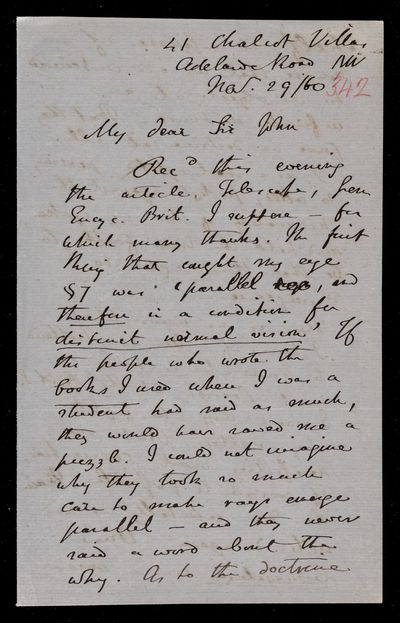 41 Chalcot Villas
Adelaide Road NW
Nov. 29/60 342
My dear Sir John
Recd this evening
the article, Telescope, from
Encyc. Brit. I suppose — for
which many thanks. The first
thing that caught my eye
§7 was 'parallel, and
therefore in a condition for
distinct normal vision' If
the people who wrote the
books I used when I was a
student had said as much,
they would have saved me a
puzzle. I could not imagine
why they took so much
care to make rays emerge
parallel — and they never
said a word about the
why. As to the doctrine